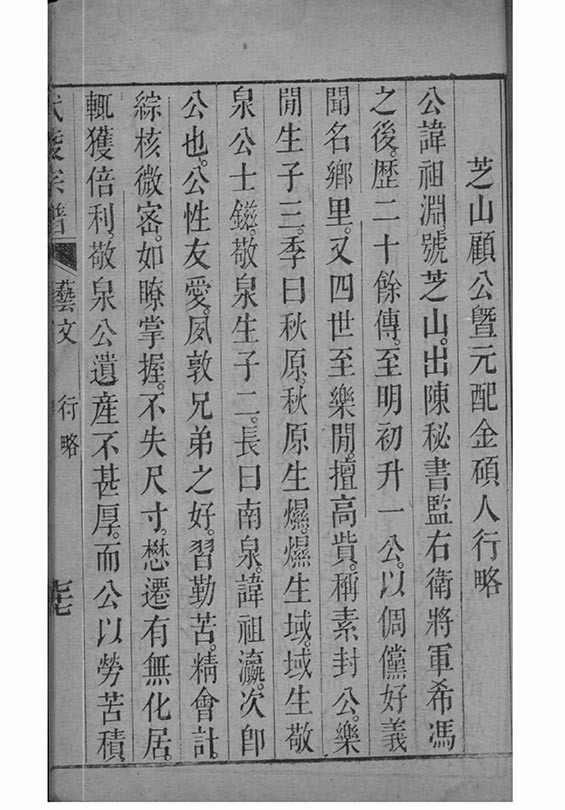 芝山顧公暨元配金碩人行略
公諱祖淵。號芝山。出陳秘書監右衛將軍希馮
之後。歷二十餘傳。至明初升一公。以倜儻好義
聞名鄉里。又四世至樂閒。擅高貲。稱素封公。樂
閒生子三。季曰秋原。秋原生爆。爆生域。域生敬
泉公士鎡。敬泉生子二。長曰南泉。諱祖瀛。次卽
公也。公性友愛。夙敦兄弟之好。習勤苦。精會計。
綜核微密。如瞭掌握。不失尺寸。懋遷有無化居。
輒獲倍利。敬泉公遺產不甚厚。而公以勞苦積
武陵宗譜 藝文 行略